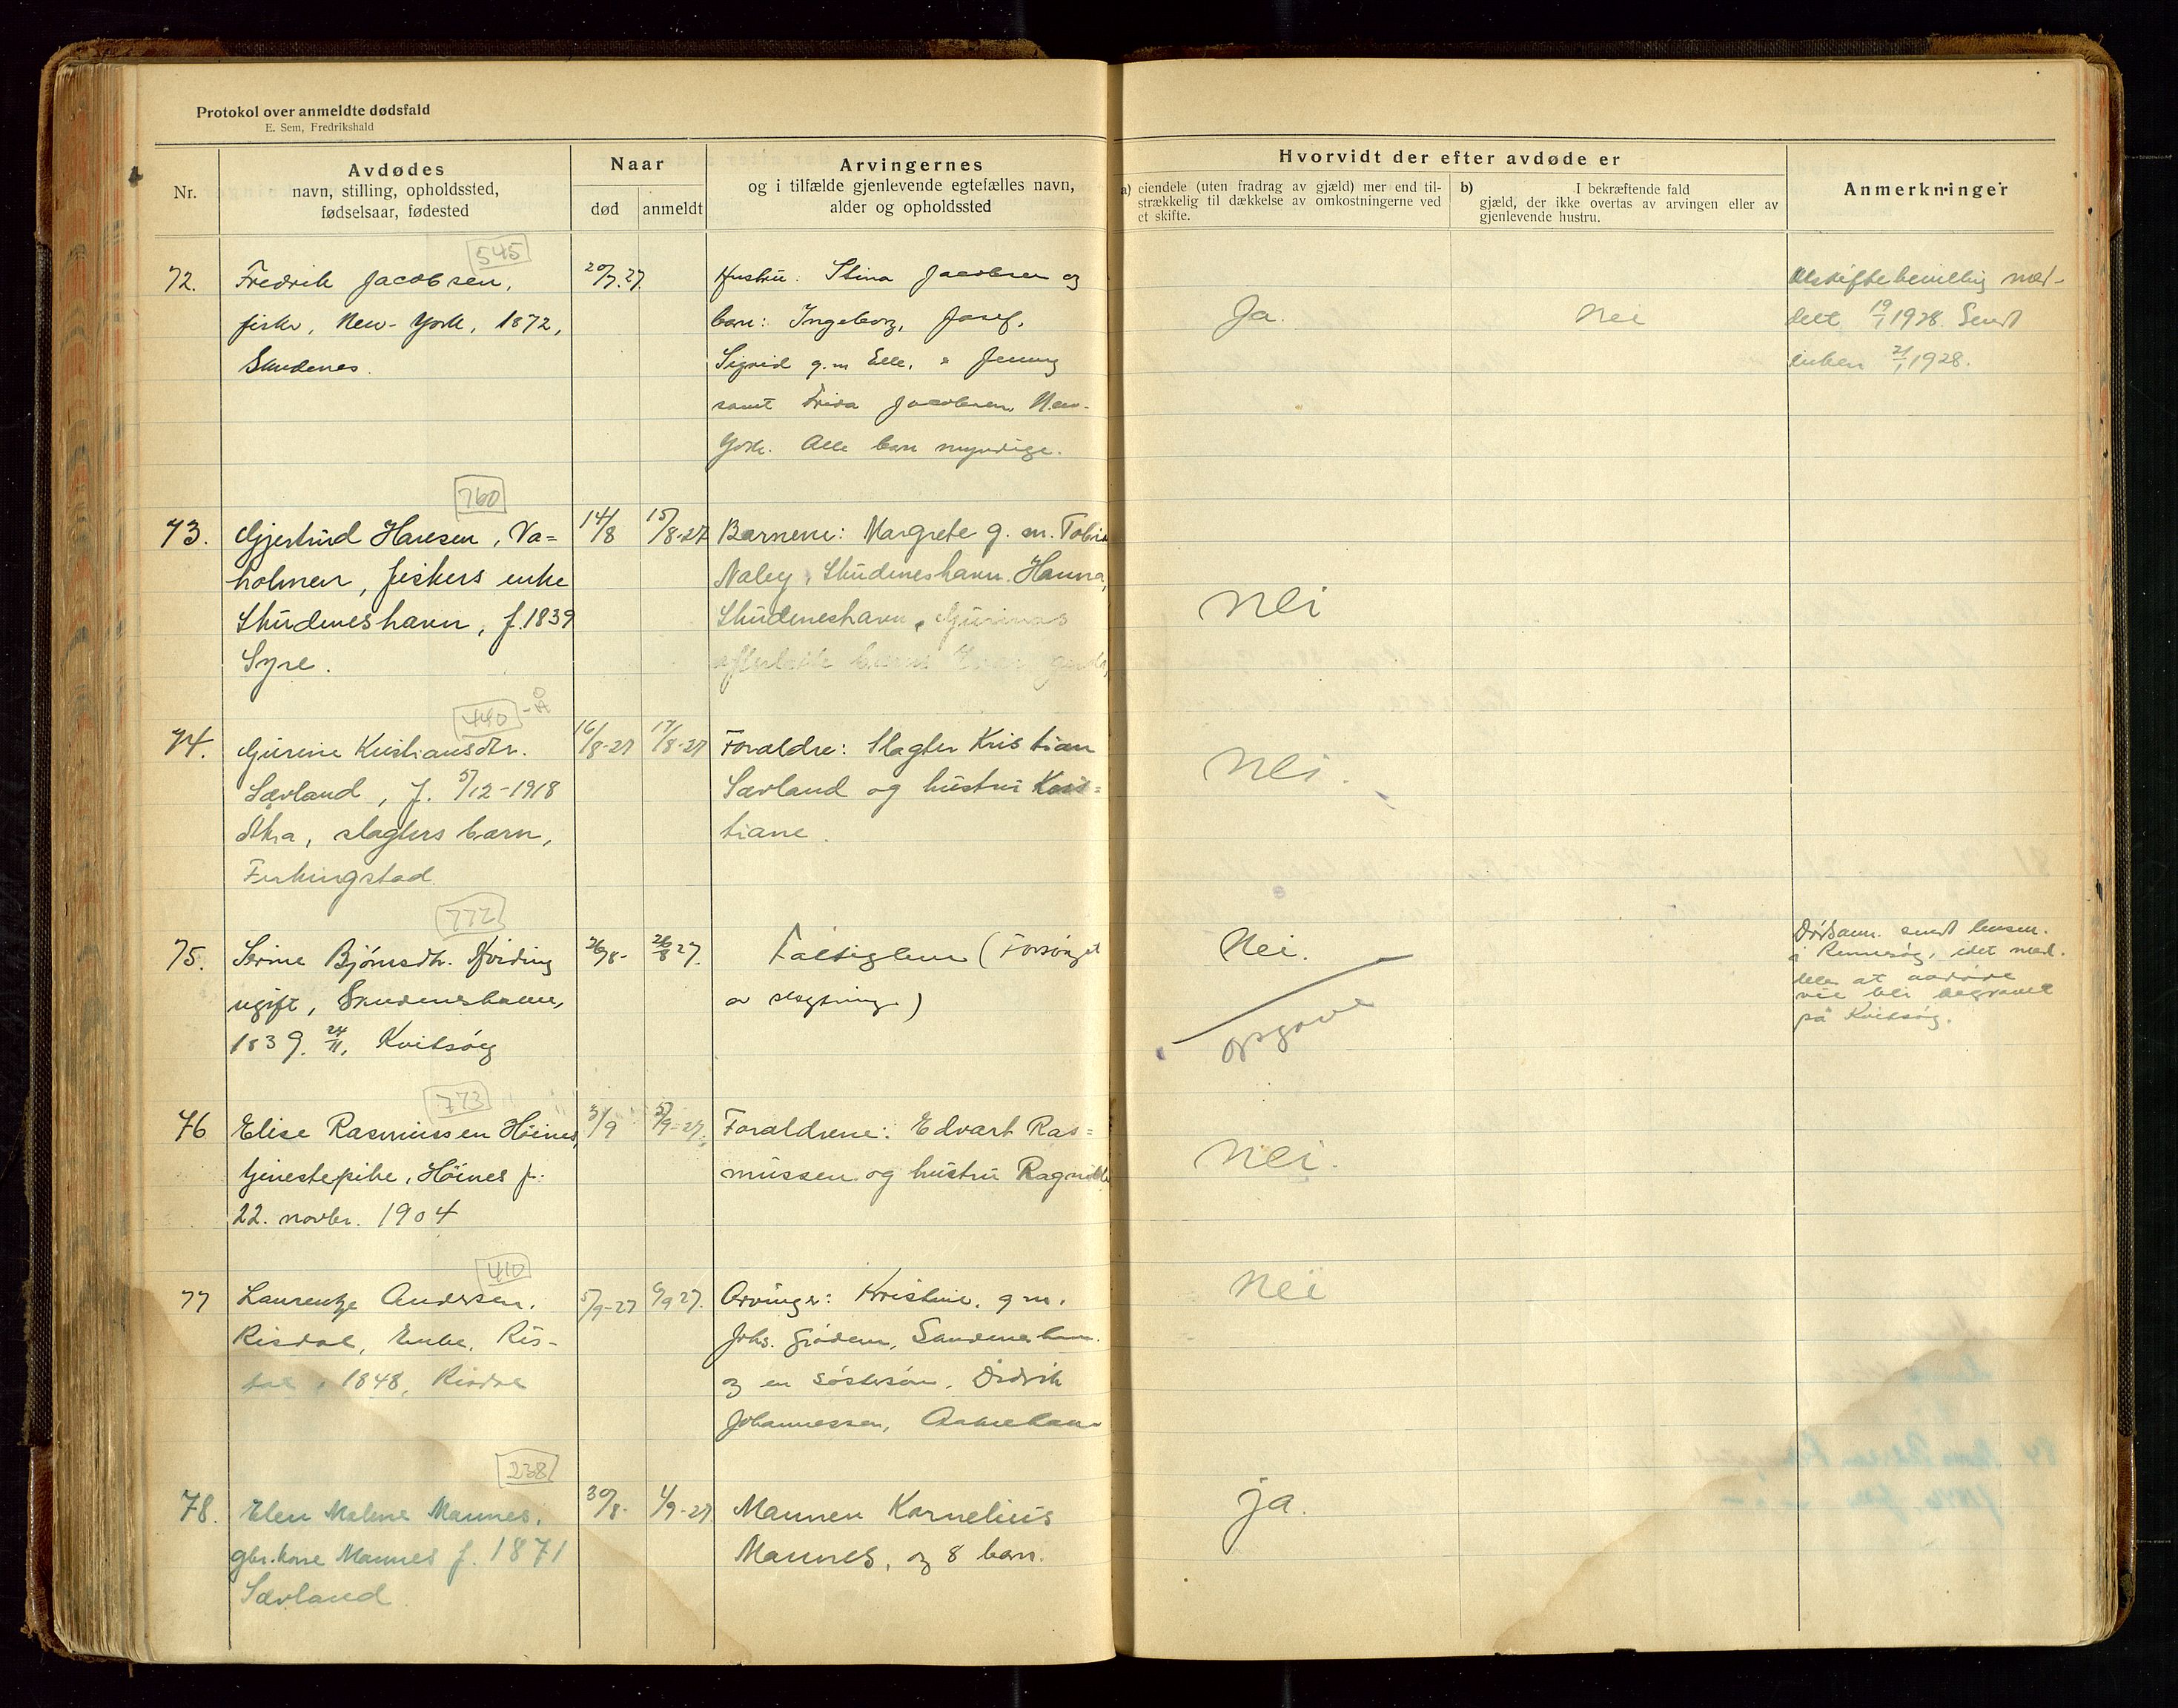 Protokol over anmeldte dødsfald
E. Sem, Fredrikshald
Nr.
Avdødes
navn, stilling, opholdssted,
fødselsaar, fødested
Naar
død
anmeldt
Arvingernes
og i tilfælde gjenlevende egtefælles navn,
alder og opholdssted
Hvorvidt der efter avdøde er
a) eiendele (uten fradrag av gjæld) mer end til-
strækkelig til dækkelse av omkostningerne ved
et skifte.
b) I bekræftende fald
gjæld, der ikke overtas av arvingen eller av
gjenlevende hustru.
Anmerkninger
545
72.
Fredrik Jacobsen,
fisker, New-York, 1872,
Skudenes.
20/7.27.
Hustru: Stina Jacobsen og
barn: Ingeborg, Josef,
Sigrid g.m Elle, Jenny
samt Frida Jacobsen, New-
York. Alle barn myndige.
Ja.
Nei
Uskiftebevilling med-
delt 19/1 1928. Sendt
enken 21/1 1928.
760
73.
Gjertrud Hansen, Va=
holmen, fiskers enke
Skudeneshavn, f. 1839
Syre.
14/8
15/8-27
Barnene: Margrete g. m. Tobias
Naley, Skudeneshavn. Hanna,
Skudeneshavn, Gurinas
efterlatte barn
nei
440 - Å
74.
Gurine Kristiansdtr.
Sævland, f. 5/12-1918
Åkra, slagters barn,
Ferkingstad
16/8-27
17/8-27
Foraldre: Slagter Kristian
Sævland og hustru Kris=
tiane.
nei.
772
75.
Serine Bjørnsdtr. Kviding
ugift, Skudeneshavn,
1839. 24/11, Kvitsøy
26/8-
26/8 27.
Fattiglem (Forsørget
av slegtning)
Nei.
opgave
Dødsanm. sendt lensm.
i Rennesøy, idet med-
deles at avdøde
vil bli begravet
på Kvitsøy.
773
76
Elise Rasmussen Höines
tjenestepike, Höines f.
22. novbr. 1904
3/9
5/9-27.
Foraldrene: Edvart Ras=
mussen og hustru Ragnilde
nei.
410
77
Laurentze Andersen.
Risdal, Enke, Ris-
dal, 1848, Risdal
5/9-27
6/9 27.
Arvinger: Kristine, g m.
Johs. Grødem, Skudeneshavn.
og en søstersøn, Didrik
Johannessen, Aakrehavn
nei
238
78.
Elen Malene Mannes,
gbr.kone Mannes f. 1871
Sævland
30/8-
1/9-27
Mannen Kornelius
Mannes, og 8 barn.
ja.